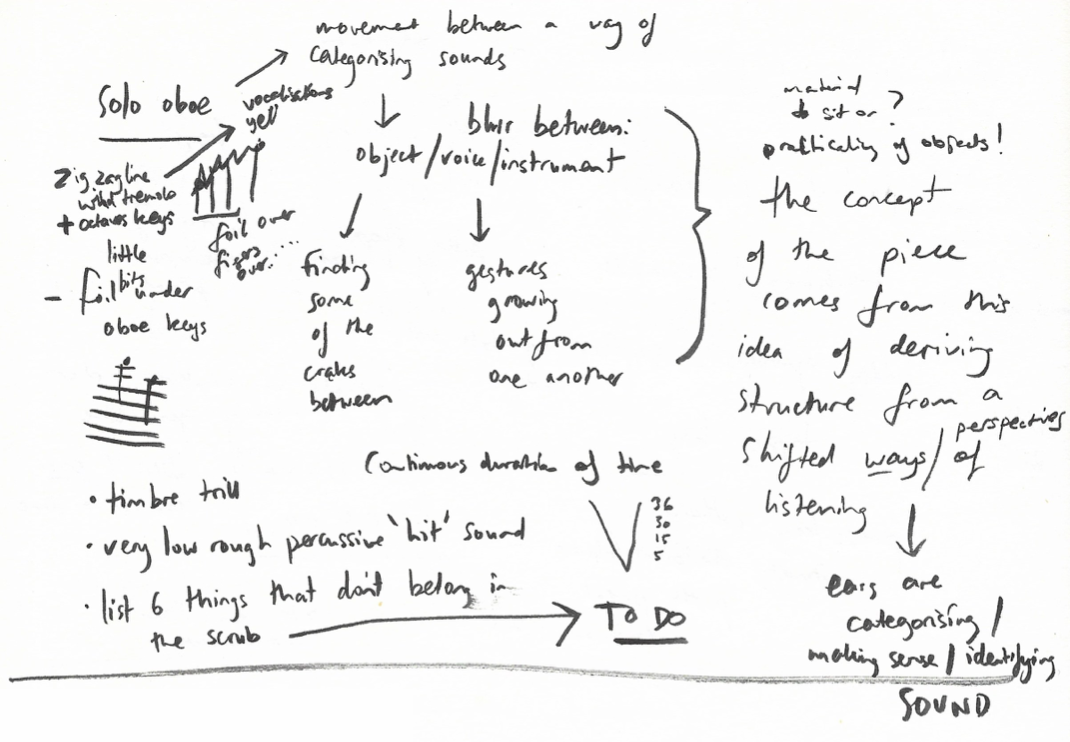 movement between a way of
categorising sounds
Solo oboe
vocalisations
yell
blur between:
object/voice/instrument
zig zag line
with tremolo
+ octaves keys
little
bits
- foil under
oboe keys
foil over
over....
finding
some
of the
craks
between
gestures
growing
out from
one another
material
to sit on?
practicality of objects!
the concept
of the piece
comes from this
idea of deriving
structure from a
perspectives
shifted ways/ of
listening
ears are
categorising /
making sense / identifying
SOUND
Continuous duration of time
36
30
15
5
• timbre trill
• very low rough percussive 'hit' sound
• list 6 things that don't belong in
the scrub
TO DO